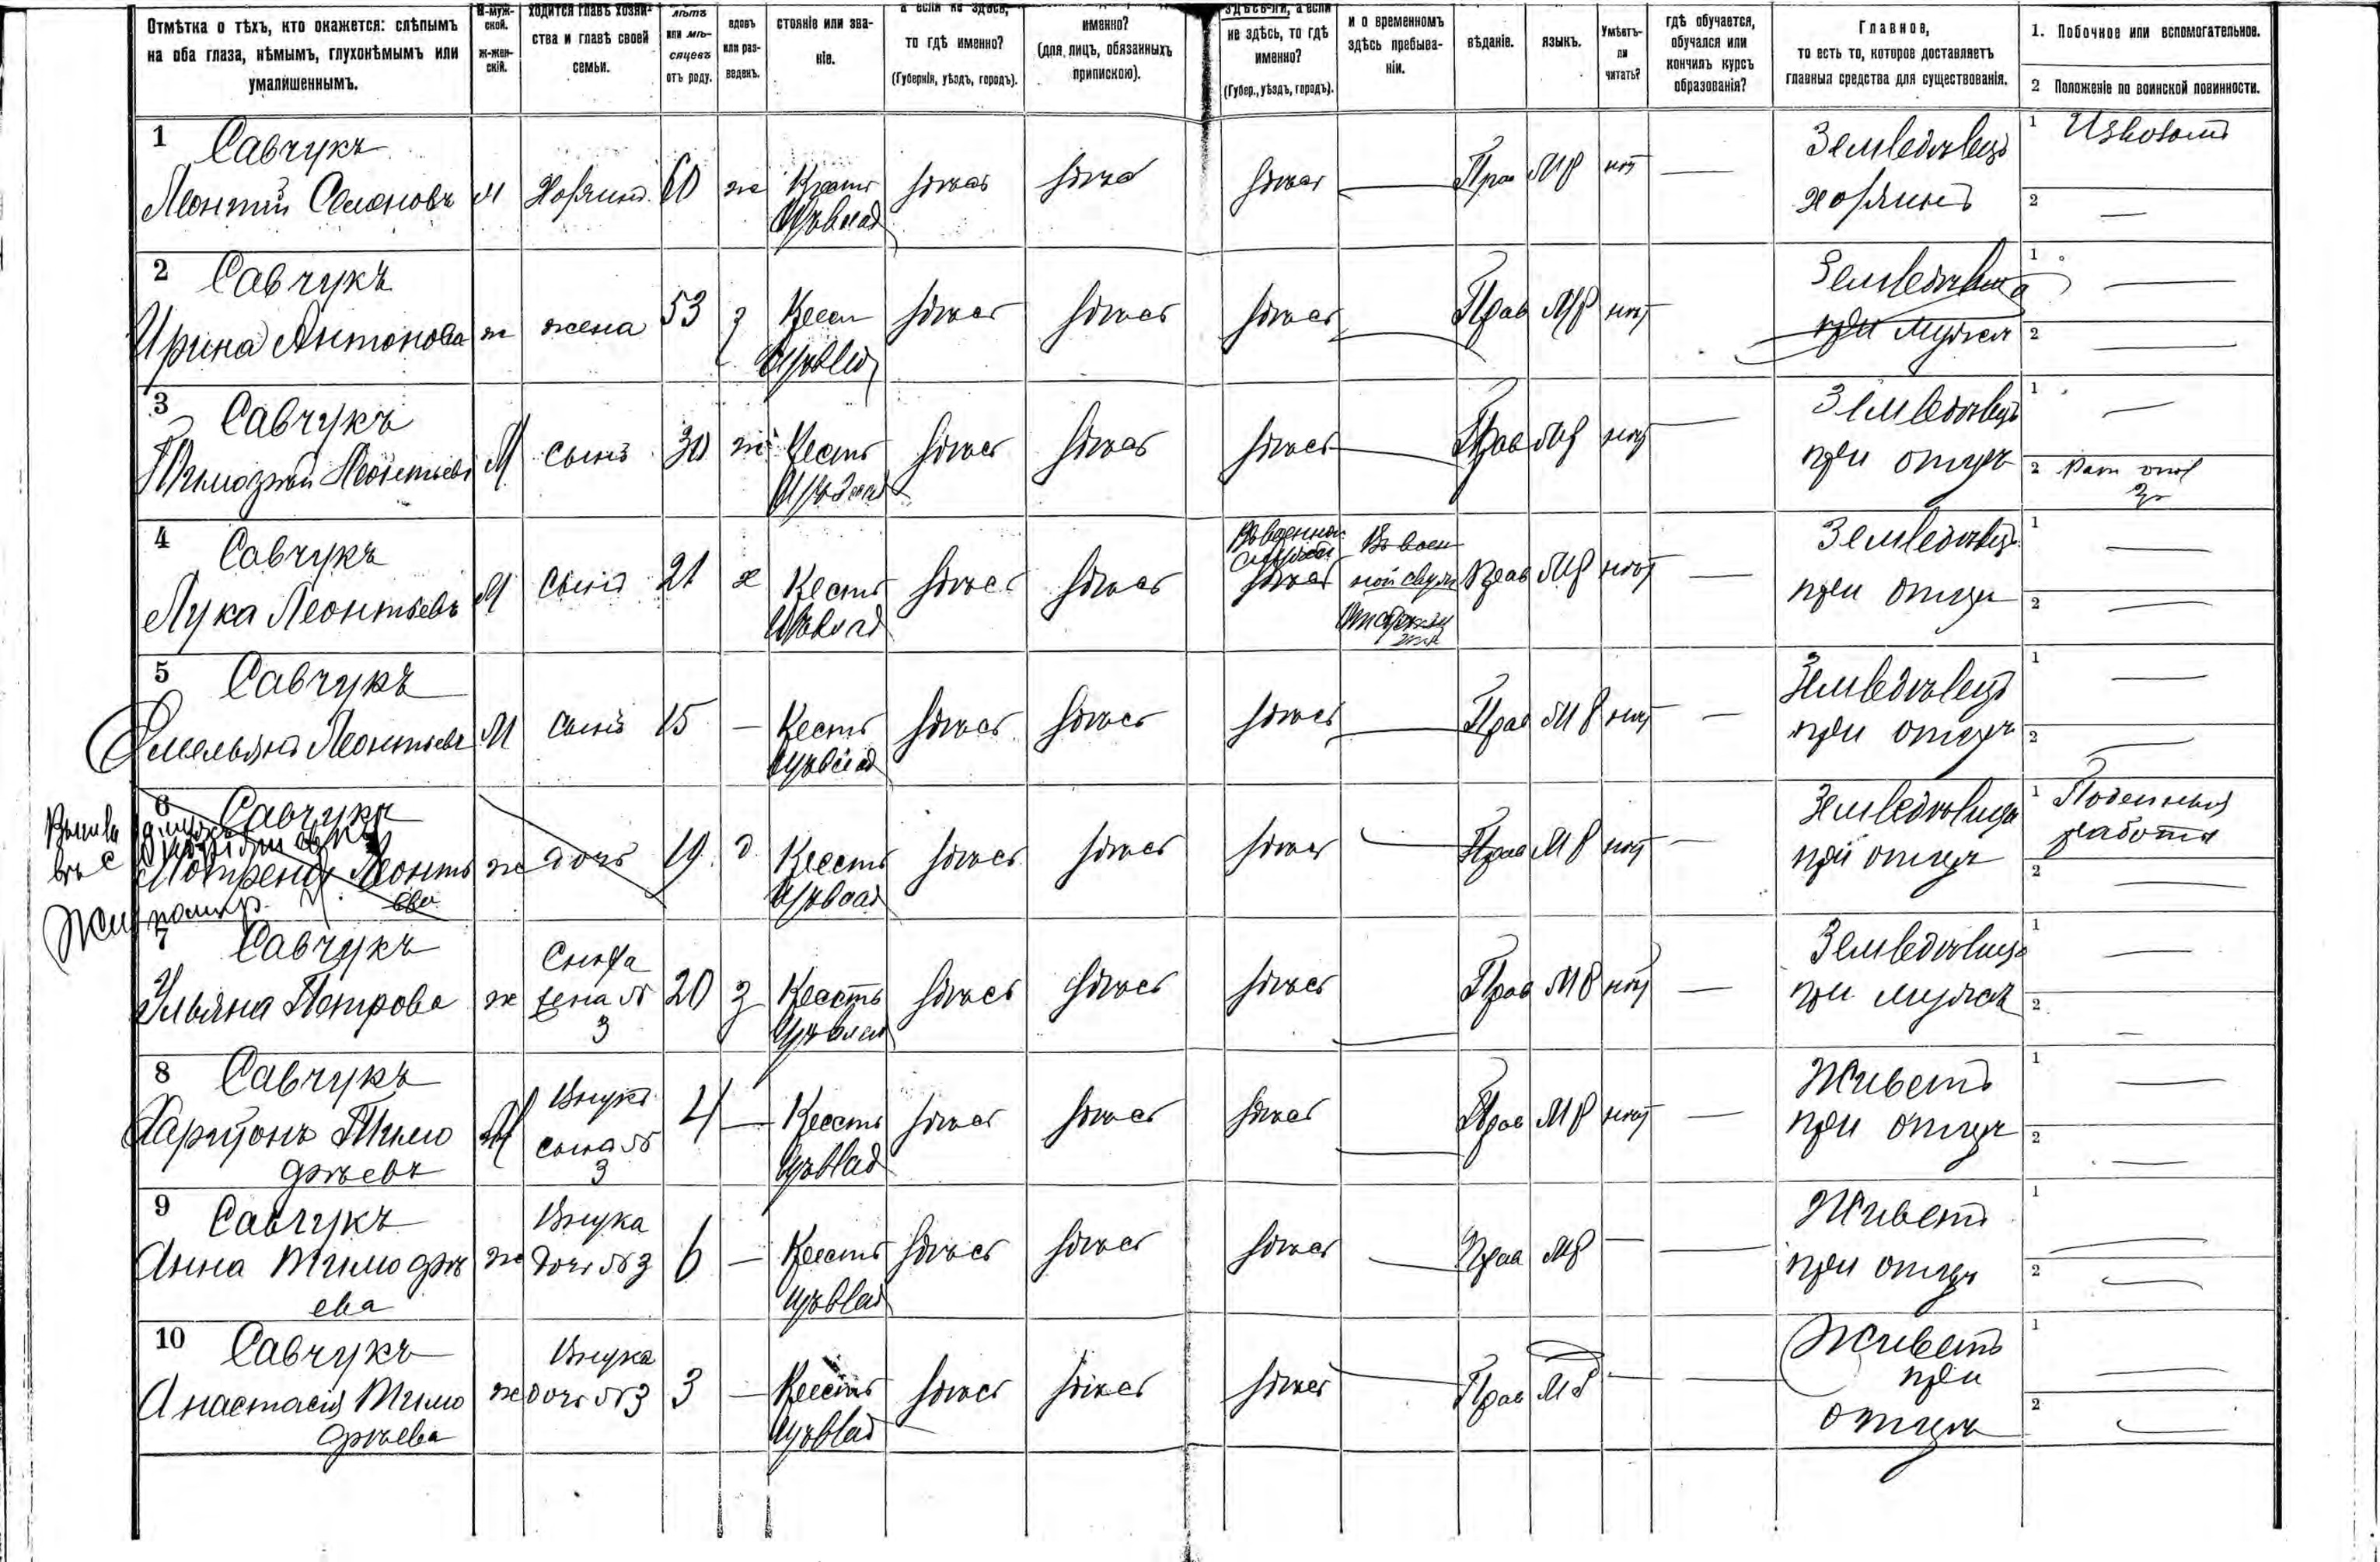 Отмѣтка о тѣхъ, кто окажется: слѣпымъ
на оба глаза, нѣмымъ, глухонѣмымъ или
умалишеннымъ.
М-муж-
ской.
ж-жен-
скій.
ходится главѣ хозяй-
ства и главѣ своей
семьи.
лѣтъ
или мѣ-
сяцевъ
отъ роду.
вдовъ
или раз-
веденъ.
стояніе или зва-
ніе.
а если не здѣсь,
то гдѣ именно?
(Губернія, уѣздъ, городъ).
именно?
(для лицъ, обязанныхъ
припискою).
здѣсь-ли, а если
не здѣсь, то гдѣ
именно?
(Губер., уѣздъ, городъ).
и о временномъ
здѣсь пребыва-
ніи.
вѣданіе.
языкъ.
Умѣетъ-
ли
читать?
гдѣ обучается,
обучался или
кончилъ курсъ
образованія?
Главное,
то есть то, которое доставляетъ
главныя средства для существованія.
1. Побочное или вспомогательное.
2 Положеніе по воинской повинности.
1 Савчукъ
Леонтій Семеновъ М Хозяинъ 60 ж Крест здѣсь здѣсь здѣсь — Прав МР нѣт —
Земледѣлецъ
хозяинъ
1 Извозомъ
2 —
2 Савчукъ
Ирина Антонова ж жена 53 з Крест здѣсь здѣсь здѣсь — Прав МР нѣт
при мужѣ
1 —
2 —
3 Савчукъ
Тимофей Леонтьевъ М сынъ 30 ж Крест здѣсь здѣсь здѣсь — Прав МР нѣт —
Земледѣлецъ
при отцѣ
1 —
2
4 Савчукъ
Лука Леонтьевъ М сынъ 21 х Крест здѣсь здѣсь здѣсь
Въ военной
службѣ
Въ воен
ной служ
Прав МР нѣт —
Земледѣлецъ
при отцѣ
1 —
2 —
5 Савчукъ
Емельянъ Леонтьевъ М сынъ 15 — Крест здѣсь здѣсь здѣсь — Прав МР нѣт —
Земледѣлецъ
при отцѣ
1 —
2 —
6 Савчукъ
Леонть
ева
ж дочь 19 д Крест здѣсь здѣсь здѣсь — Прав МР нѣт —
Земледѣлица
при отцѣ
1 Поденная
работа
2 —
7 Савчукъ
Ульяна Петрова ж
Сноха
жена №
3
20 з Крестъ здѣсь здѣсь здѣсь — Прав МР нѣт —
Земледѣлица
при мужѣ
1 —
2 —
8 Савчукъ
Харитонъ Тимо
фѣевъ
М
Внукъ
сынъ №
3
4 — Крест здѣсь здѣсь здѣсь — Прав МР нѣт —
Живетъ
при отцѣ
1 —
2 —
9 Савчукъ
Анна Тимофѣ
ева
ж
Внука
дочь №3
6 — Крест здѣсь здѣсь здѣсь — Прав МР — —
Живетъ
при отцѣ
1 —
2 —
10 Савчукъ
Анастасія Тимо
фѣева
ж
Внука
дочь №3
3 — Крест здѣсь здѣсь здѣсь — Прав МР — —
Живетъ
при
отцѣ
1 —
2 —